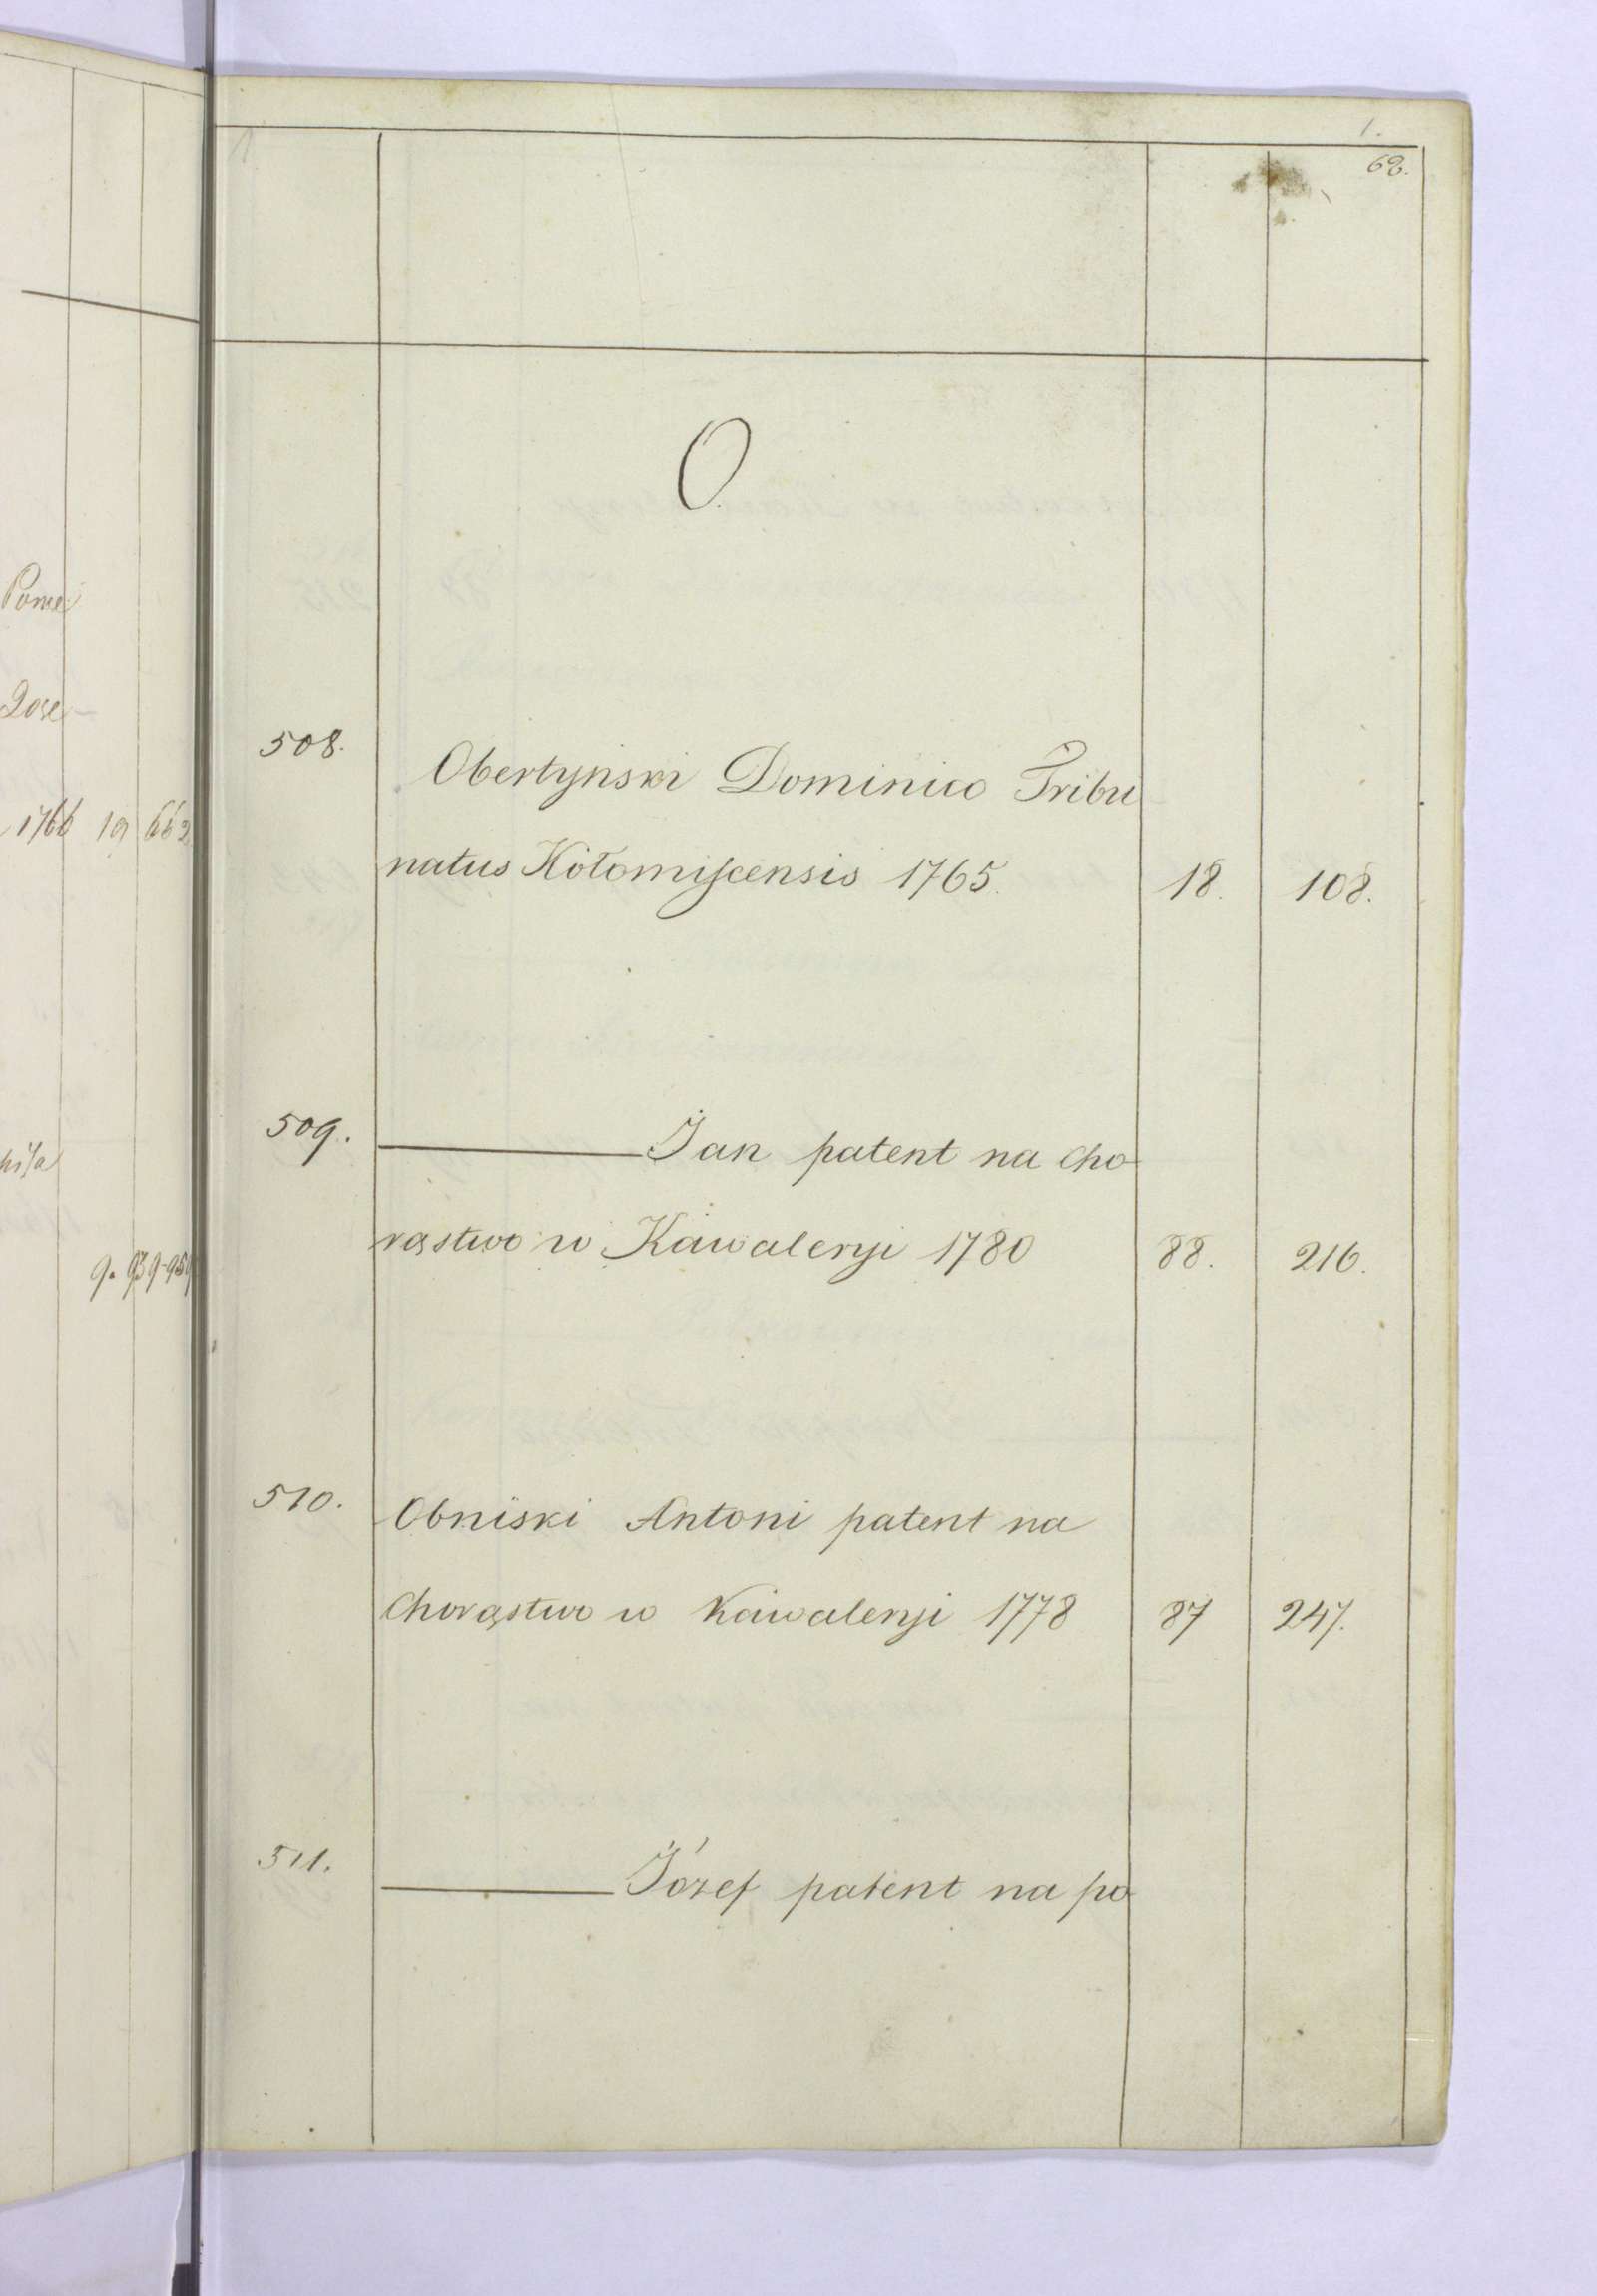 1.
68.
O.
508. Obertyński Dominico Tribu
natus Kołomijcensis 1765. 18. 108.
509. ——— Jan patent na cho-
rąstwo w Kawaleryi 1780 88. 216.
510. Obniski Antoni patent na
Chorąstwo w Kawaleryi 1778 87 247.
511. ——— Józef patent na po-
1766 19 662
9. 939-959